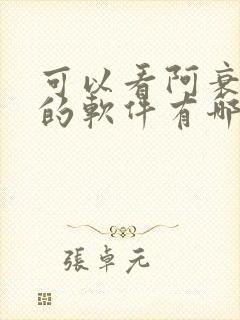 可以看阿衰
的軟件有哪
張卓元